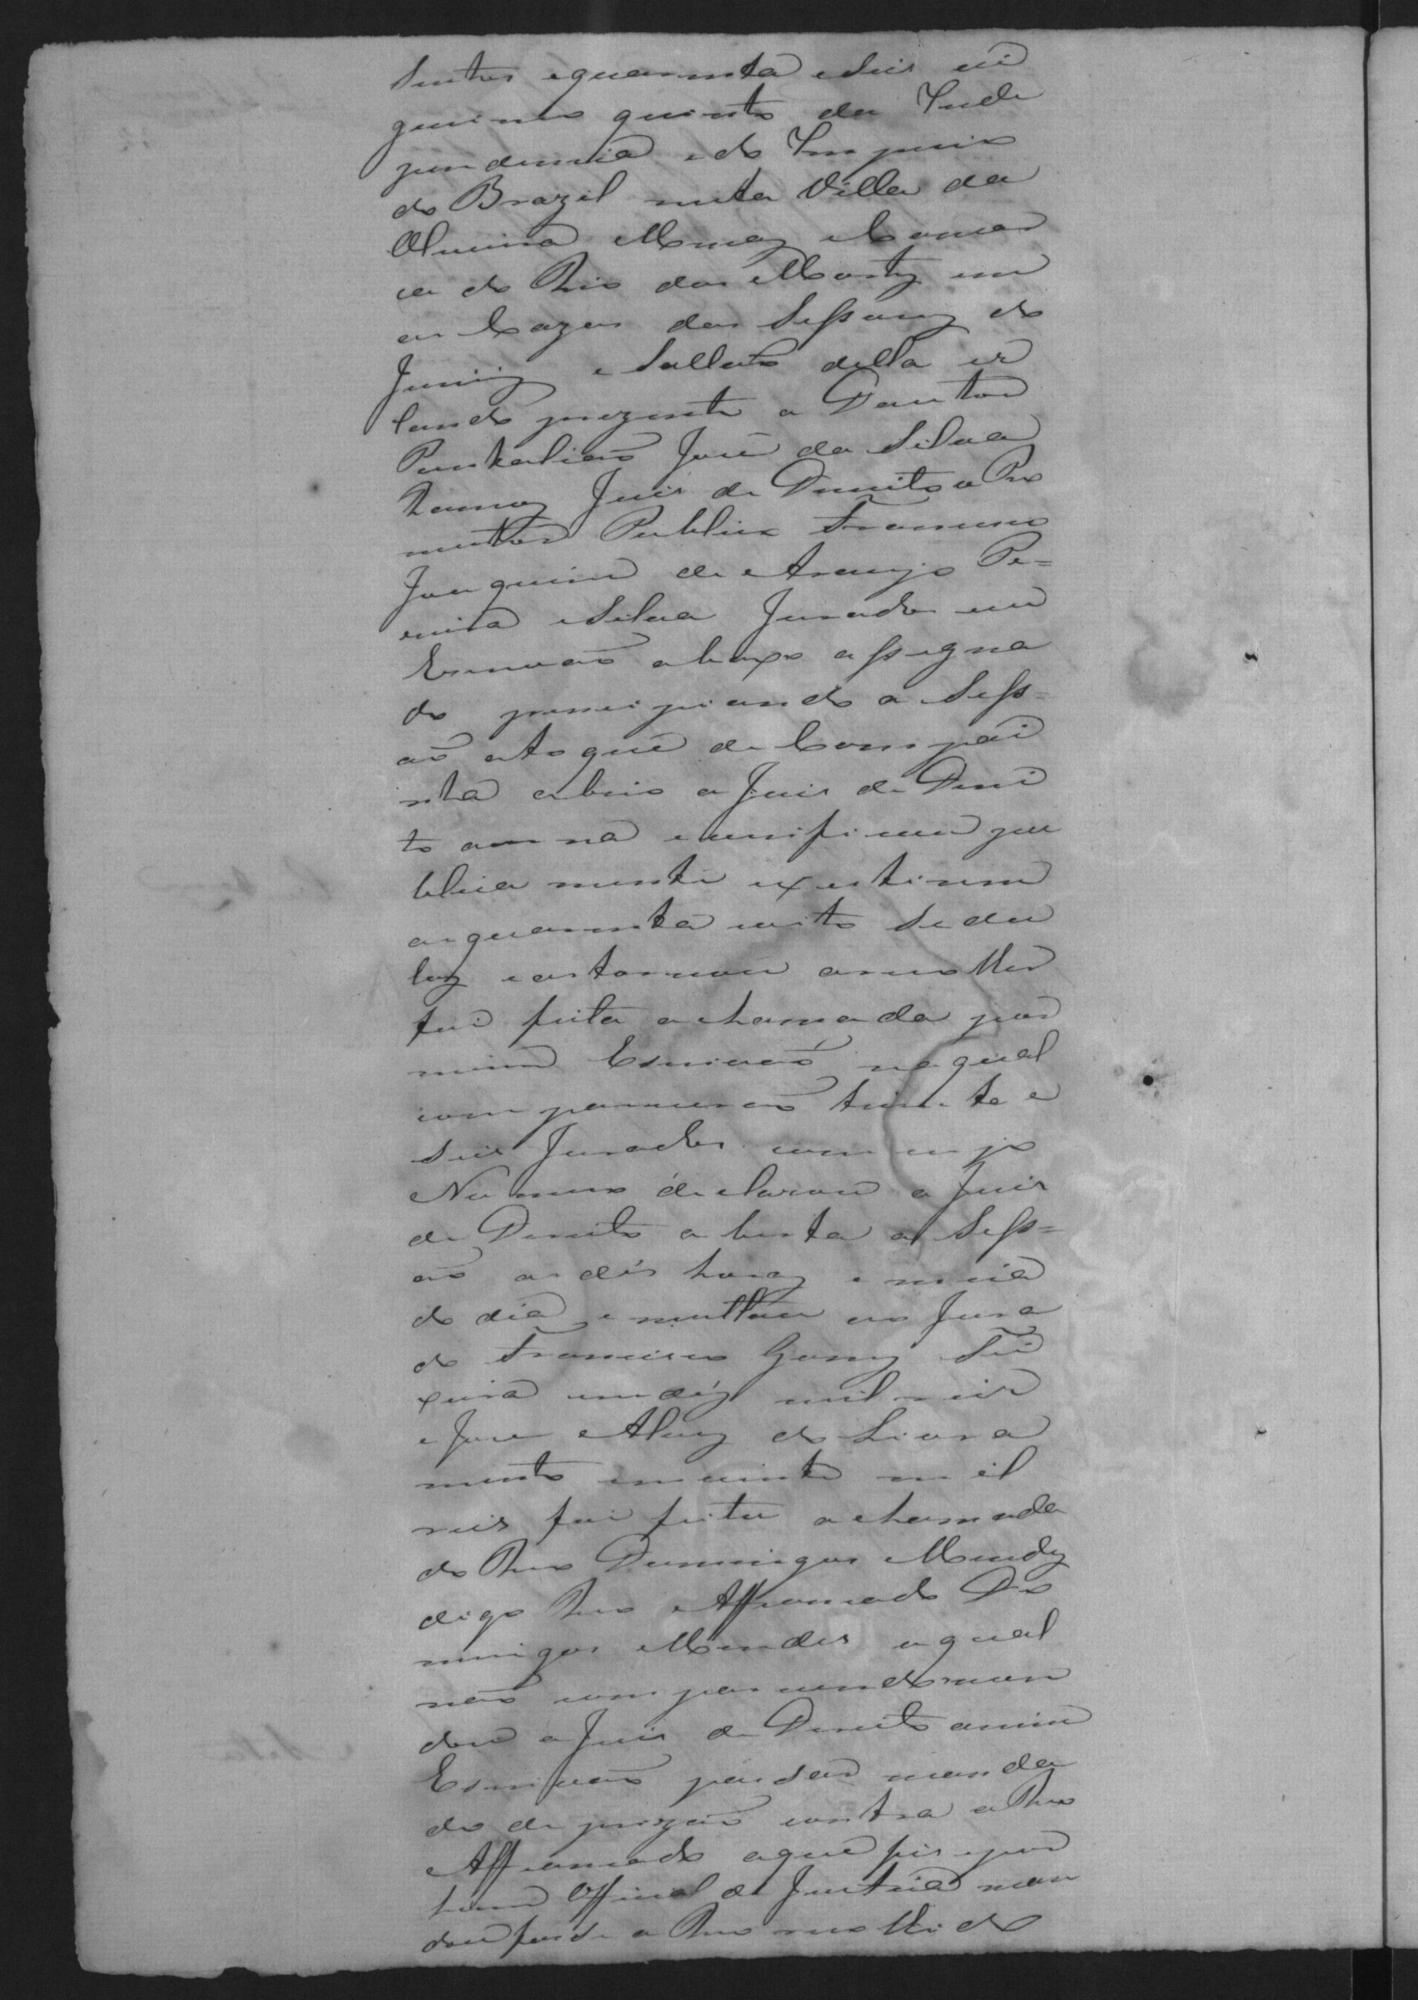 sentos equarenta eseis vi
gecimo quinto da Inde
pendencia edo Imperio
do Brazil nesta Villa da
Oliveira Minas e Comar
ca do Rio das Mortes em
as Cazas das Sessoens do
Jury e Sallas della es
tando prezente o Doutor
Pantaliaõ José da Silva
Ramos Juis de Direito o Pro
mutor Publico Francisco
Joaquim de Araujo Pe=
reira eSilva Jurados eeu
Escrivaõ abaixo assigna
do principiando a Sess=
aõ atoque de Campai
nha abrio o Juis de Direi
to aurna everificou pu
blica mente existirem
asquarenta eoito Sedu
las eastornou arecolher
foi feita achamada por
mim Escrivaõ naqual
comparecerao trinta e
seis Jurados com cujo
Numero declarou o Juis
de Direito aberta a Sess=
aõ as dés horas emeia
do dia emultou ao Jura
do Francisco Gomes Tei
xeira emdéz mil reis
eJose Alves do Livra
mento emvinte mil
reis foi feita achamada
do Reo Domingos Mendes
digo Reo Affiancado Do
mingos Mendes oqual
não comparecendo man
dou o Juis de Direito amim
Escrivaõ passar manda
do de prizaõ contra oReo
Affiancado aque fis epor
hum Official de Justiça man
dou fosse o Reo recolhido